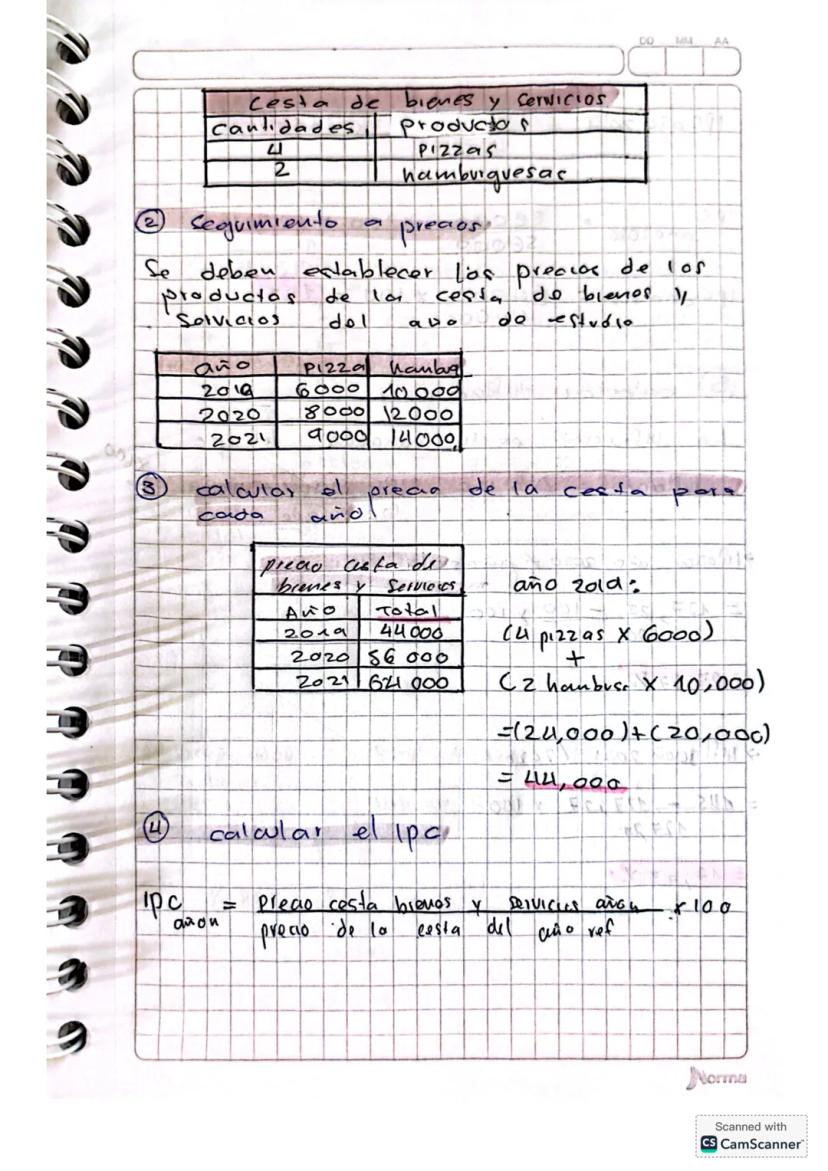 DD MM AA
Cesta de bienes y servicios
cantidades productos
4 pizzas
2 hamburguesas
② Seguimiento a precios
Se deben establecer los precios de los
productos de la cesta de bienes y
Servicios del año de estudio
año pizza hambg
2019 6000 10000
2020 8000 12000
2021 9000 14000
③ calcular el precio de la cesta para
cada año
precio cesta de
bienes y Servicios
Año Total
2019 44000
2020 56 000
2021 64 000
año 2019:
(4 pizzas x 6000)
+
(2 hambusc x 10,000)
=(24,000)+(20,000)
= 44,000
④ calcular el IPC
IPC año n = precio cesta bienes y servicios año n x 100
precio de la cesta del año ref
Norma
Scanned with
CS CamScanner